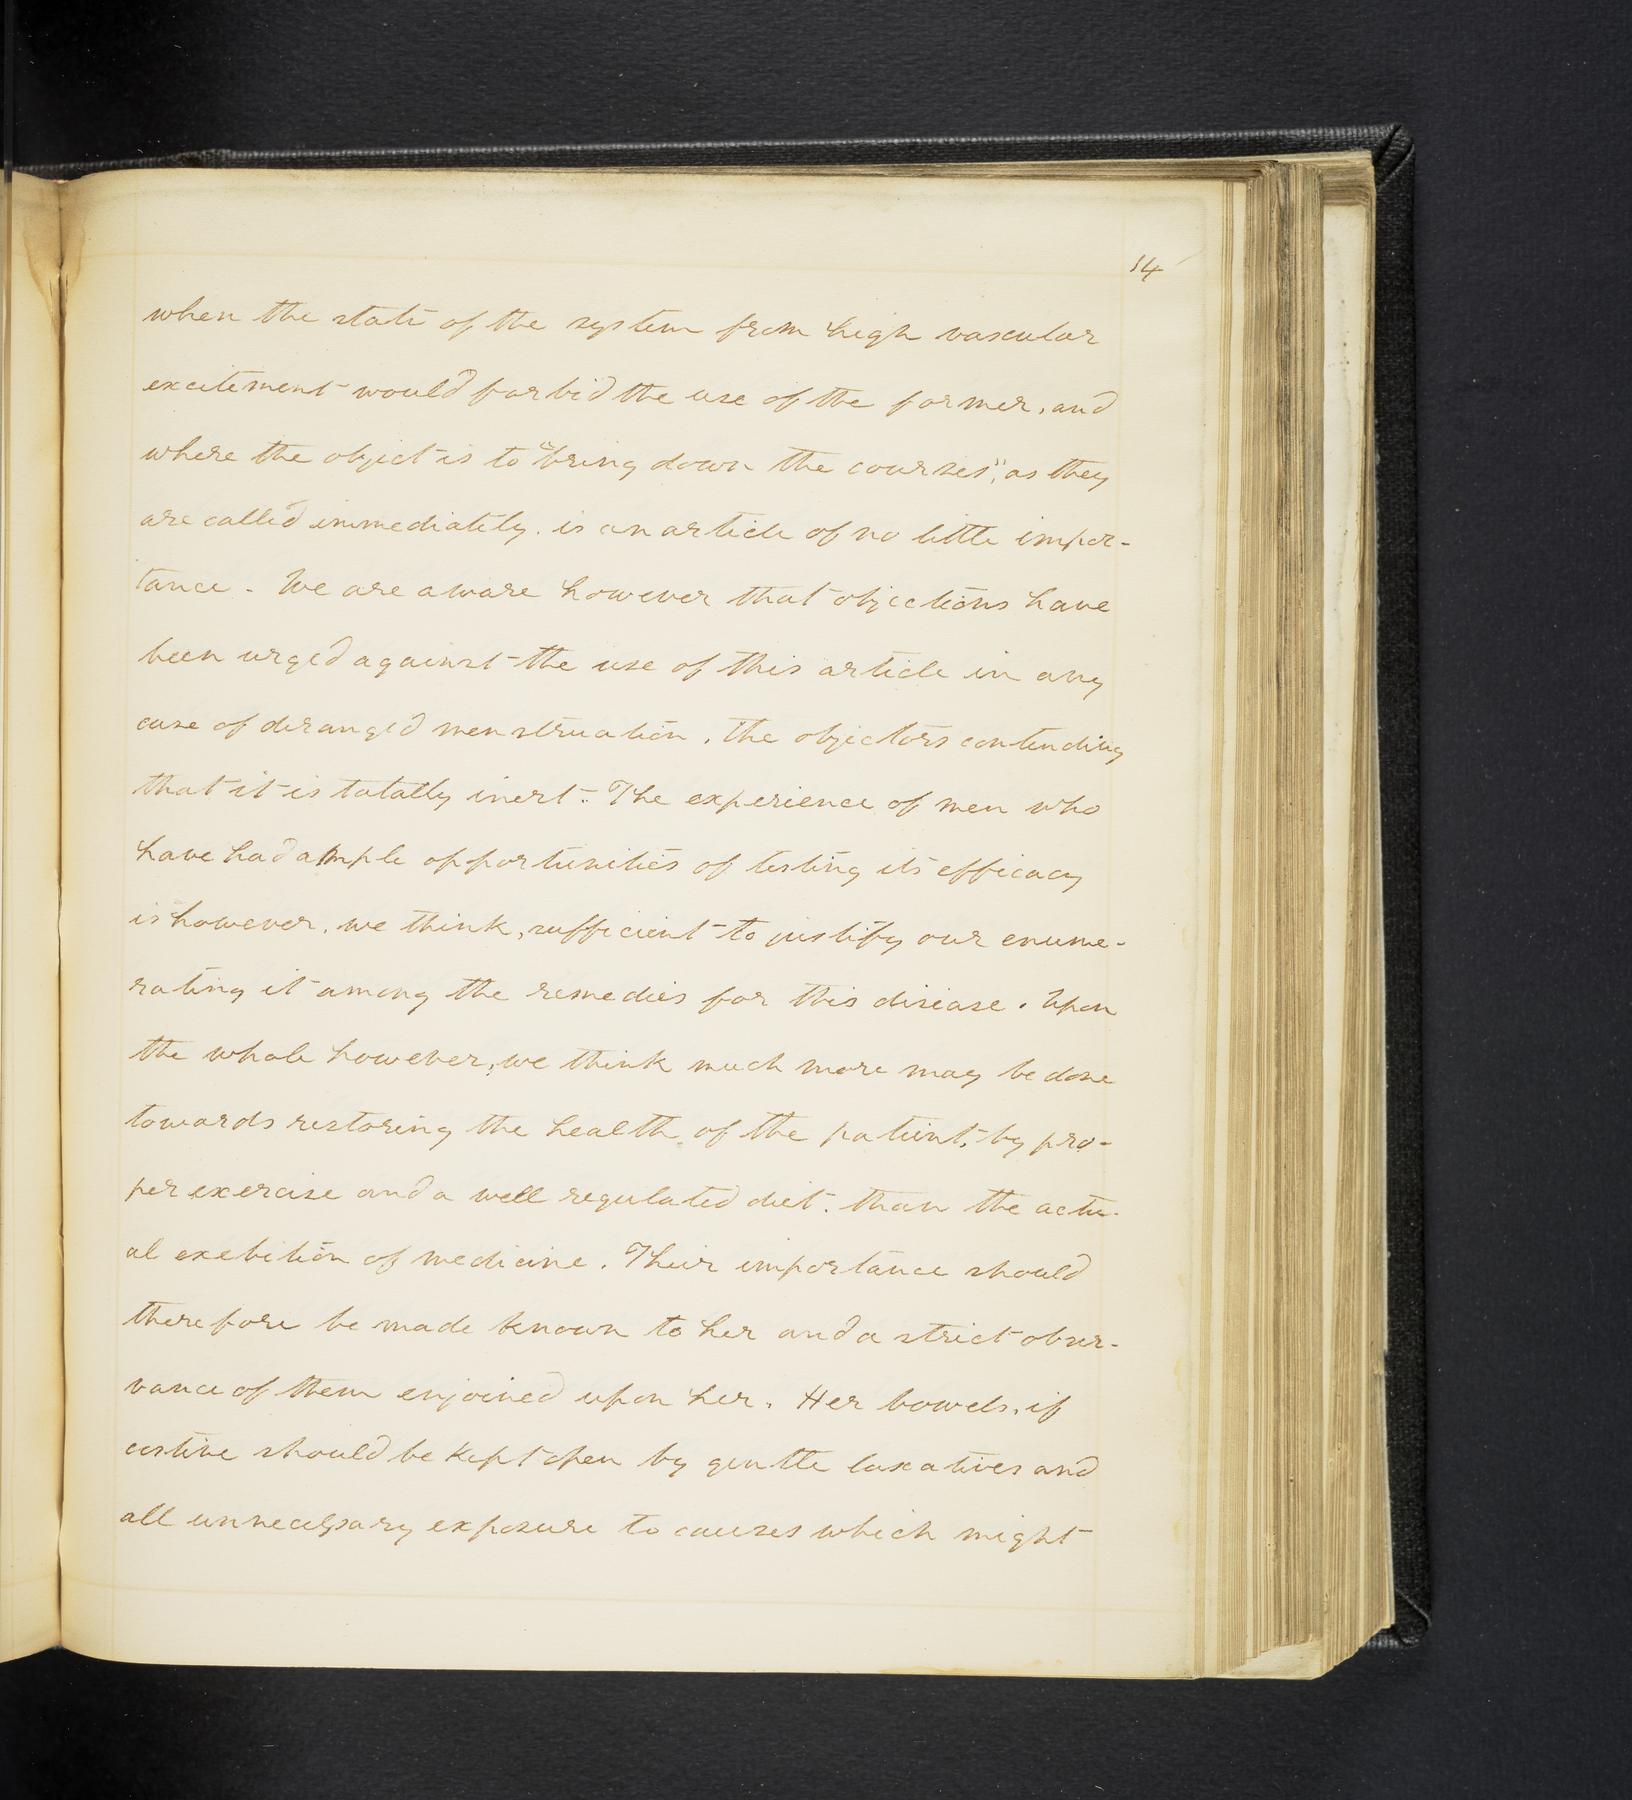 14
when the state of the system from high vascular
excitement would forbid the use of the former, and
where the object is to "bring down the courses", as they
are called immediately. is an article of no little impor-
tance. We are aware however that objections have
been urged against the use of this article in any
case of deranged menstruation, the objectors contending
that it is totally inert. The experience of men who
have had ample opportunities of testing its efficacy
is however, we think, sufficient to justify our enume-
rating it among the remedies for this disease. Upon
the whole however, we think much more may be done
towards restoring the health of the patient, by pro-
per exercise and a well regulated diet. than the actu-
al exebition of medicine. Their importance should
therefore be made known to her and a strict obser-
vance of them enjoined upon her. Her bowels, if
costive should be kept open by gentle laxatives and
all unnecessary exposure to causes which might